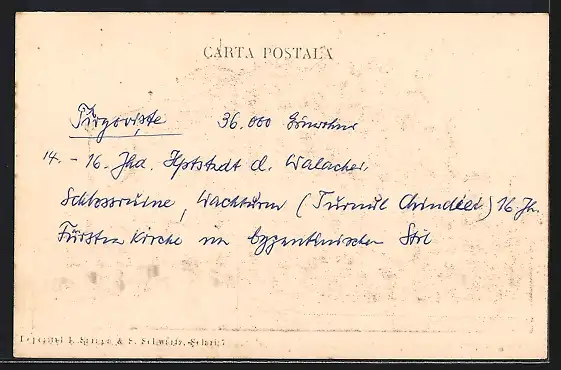 CARTA POSTALA
Tîrgovişte 36.000 Einwohner
14. - 16. Jhd. Hptstadt d. Walachei.
Schlossruine, Wachturm (Turnul Chindiei) 16. Jh.
Fürsten Kirche im byzantinischen Stil
& S. Schwartz,